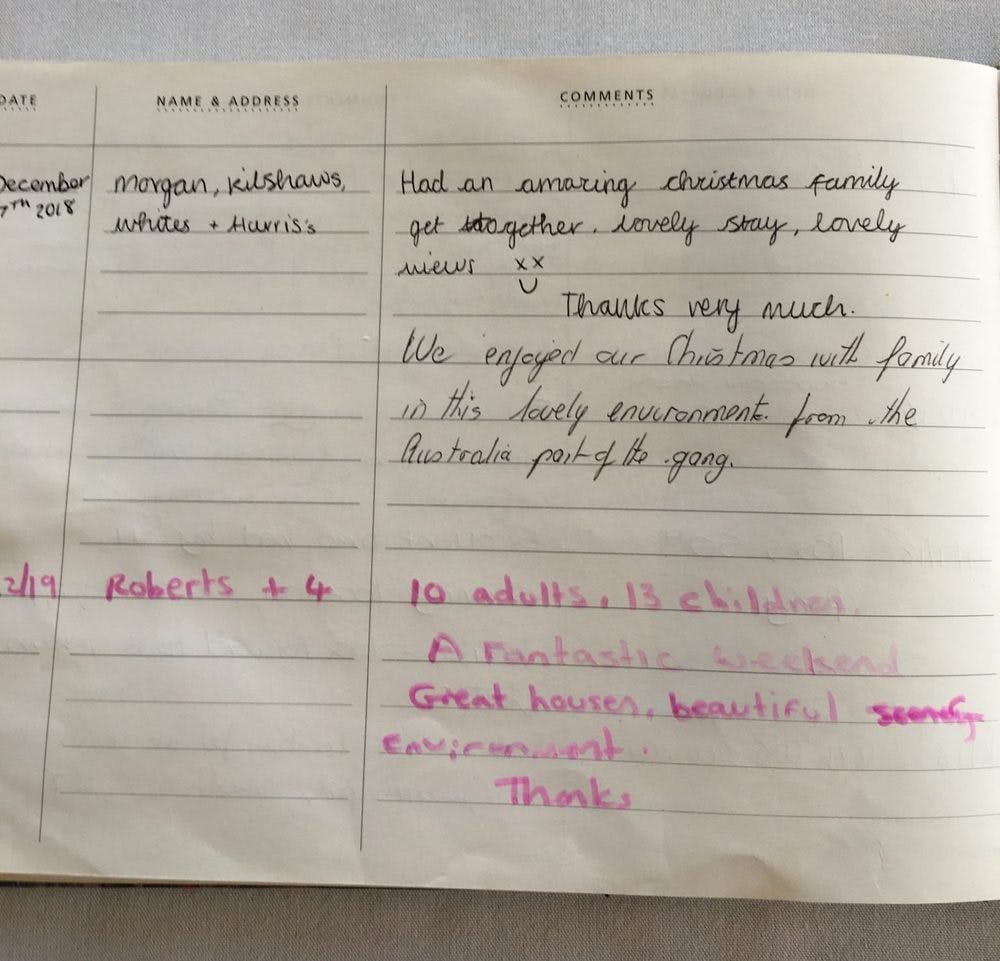 DATE NAME & ADDRESS COMMENTS
December morgan, Kilshaws, Had an amazing christmas family
7TH 2018 whites + Harris's get together. lovely stay, lovely
views xx
Thanks very much.
We enjoyed our Christmas with family
in this lovely environment. from the
Australia part of the gang.
2/19 Roberts + 4 10 adults, 13 children.
A Fantastic weekend
Great houses, beautiful
environment.
Thanks